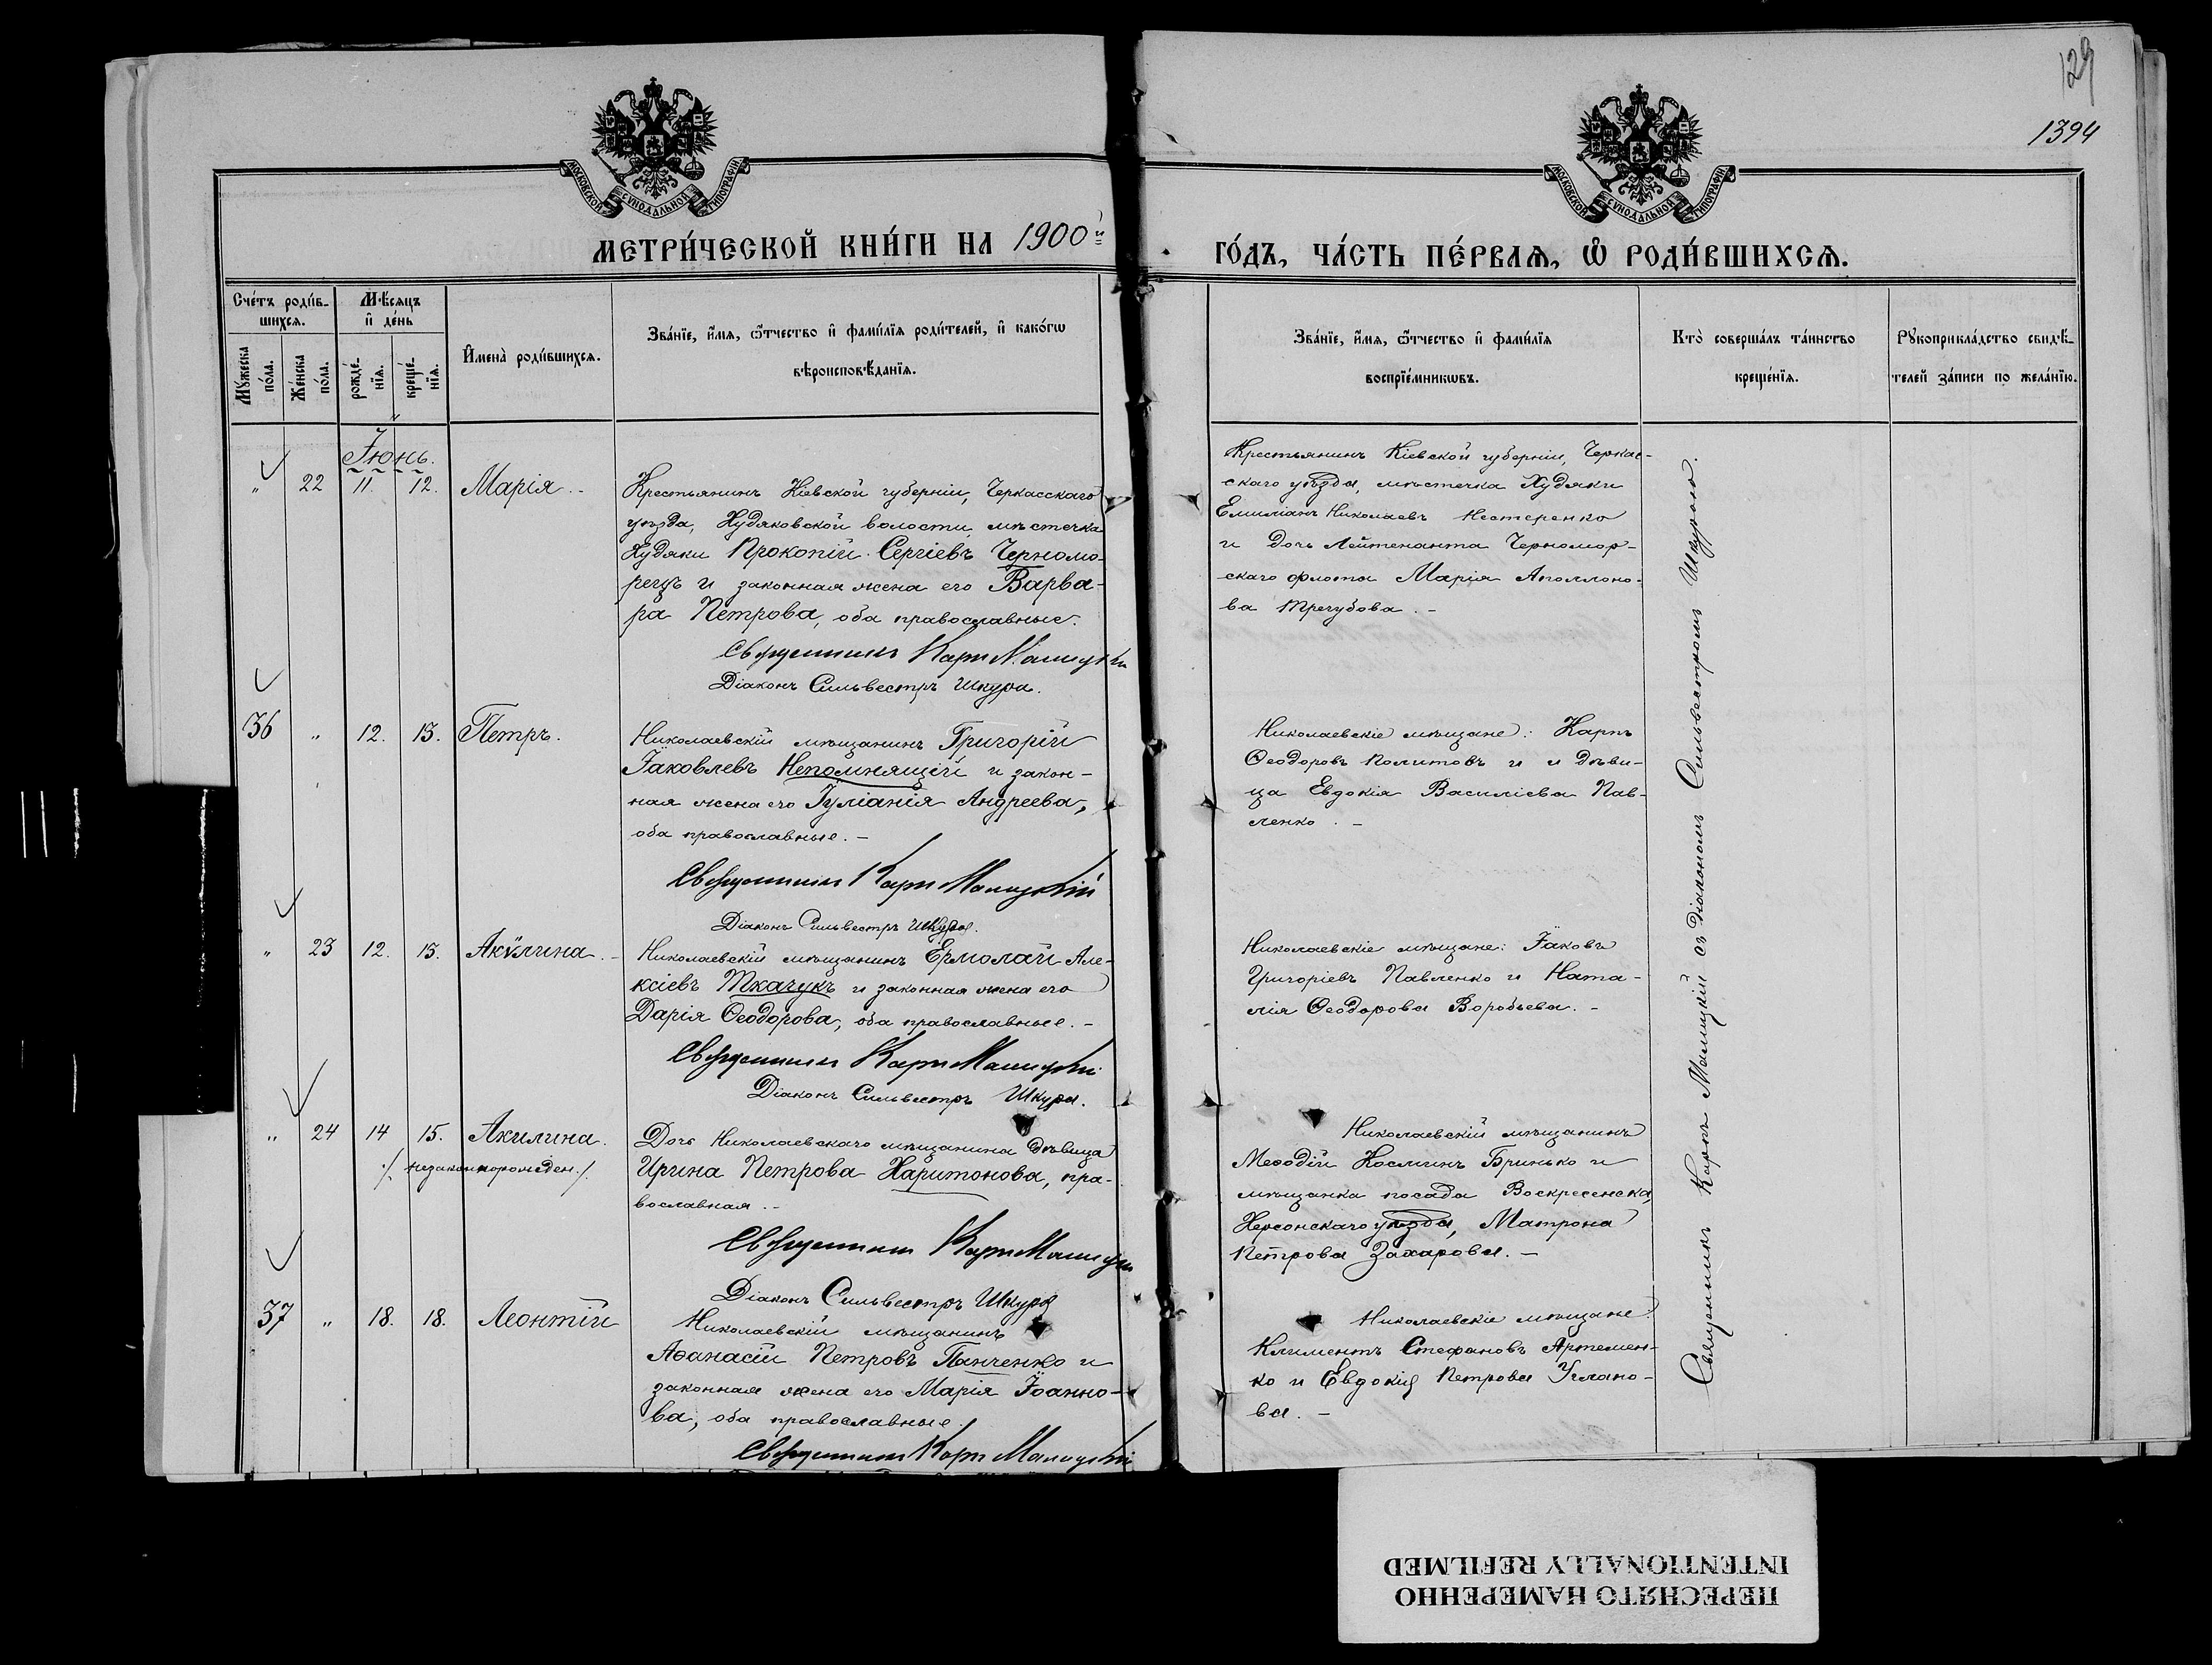 129
1394
МОСКОВСКОЙ СѴНОДАЛЬНОЙ ТИПОГРАФІИ
МОСКОВСКОЙ СѴНОДАЛЬНОЙ ТИПОГРАФІИ
МЕТРИ́ЧЕСКОЙ КНИ́ГИ НА 1900й
ГО́ДЪ, ЧА́СТЬ ПЕ́РВАѦ, Ѡ҆ РОДИ́ВШИХСѦ.
Сче́тъ роди́в-
шихсѧ.
Мꙋ́жеска по́ла.
Же́нска по́ла.
Мѣ́сѧцъ
и҆ де́нь
рожде́-
нїѧ.
креще́-
нїѧ.
И҆мена̀ роди́вшихсѧ.
Зва́нїе, и҆́мѧ, ѻ҆́тчество и҆ фами́лїѧ роди́телей, и҆ како́гѡ
вѣроисповѣ́данїѧ.
Зва́нїе, и҆́мѧ, ѻ҆́тчество и҆ фами́лїѧ
воспрїе́мникѡвъ.
Кто̀ соверша́лъ та́инство
креще́нїѧ.
Рꙋкоприкла́дство свидѣ́-
телей за́писи по жела́нїю.
Іюнь.
" 22 11. 12. Марія.-
Крестьянинъ Кіевской губерніи, Черкасскаго
уѣзда, Худяковской волости, мѣстечка
Худяки Прокопій Сергіевъ Черномо-
рецъ и законная жена его Варва-
ра Петрова, оба православные.
Священникъ Карпъ Малицкій
Діаконъ Сильвестръ Шкура.
Крестьянинъ Кіевской губерніи, Черкас-
скаго уѣзда, мѣстечка Худяки
Емиліанъ Николаевъ Нестеренко
и дочь Лейтенанта Черномор-
скаго флота Марія Аполлоно-
ва Тречубова.-
36 " 12. 13. Петръ.
Николаевскій мѣщанинъ Григорій
Іаковлевъ Непомнящій и закон-
ная жена его Іуліанія Андреева,
оба православные.-
Священникъ Карпъ Малицкій
Діаконъ Сильвестръ Шкура.
Николаевскіе мѣщане: Карпъ
Ѳеодоровъ Политовъ и и дѣви-
ца Евдокія Василіева Пав-
ленко.-
" 23 12. 13. Акѵлина.-
Николаевскій мѣщанинъ Ермолай Але-
ксіевъ Ткачукъ и законная жена его
Дарія Ѳеодорова, оба православные.-
Священникъ Карпъ Малицкій
Діаконъ Сильвестръ Шкура.
Николаевскіе мѣщане: Іаковъ
Григоріевъ Павленко и Ната-
лія Ѳеодорова Воробьева.-
" 24 14 15. Акилина.
/. незаконнорожден./.
Дочь Николаевскаго мѣщанина дѣвица
Ирина Петрова Харитонова, пра-
вославная.-
Священникъ Карпъ Малицкій
Діаконъ Сильвестръ Шкура
Николаевскій мѣщанинъ
Меѳодій Косминъ Бринько и
мѣщанка посада Воскресенска,
Херсонскаго уѣзда, Матрона
Петрова Захарова.-
37 " 18. 18. Леонтій
Николаевскій мѣщанинъ
Аѳанасій Петровъ Панченко и
законная жена его Марія Іоанно-
ва, оба православные.
Священникъ Карпъ Малицкій
Николаевскіе мѣщане:
Климентъ Стефановъ Артемен-
ко и Евдокія Петрова Углано-
ва.-
Священникъ Карпъ Малицкій съ діакономъ Сильвестромъ Шкурою.
ПЕРЕСНЯТО НАМЕРЕННО
INTENTIONALLY REFILMED